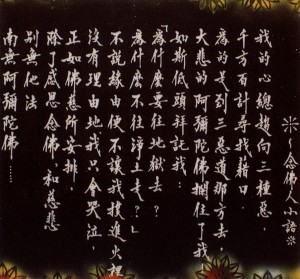 ～念佛人小語※
我的心總趨向三種惡，
千方百計尋找藉口，
為的是到三惡道那方去，
大悲的阿彌陀佛攔住了我，
如斯低頭拜託我：
「為什麼要往地獄去？
為什麼不往淨土走？」
不說緣由便不讓我投進火裡，
沒有理由地，我只會哭泣，
正如佛慈所安排，
除了感恩念佛，和慈悲
別無他法
南無阿彌陀佛……